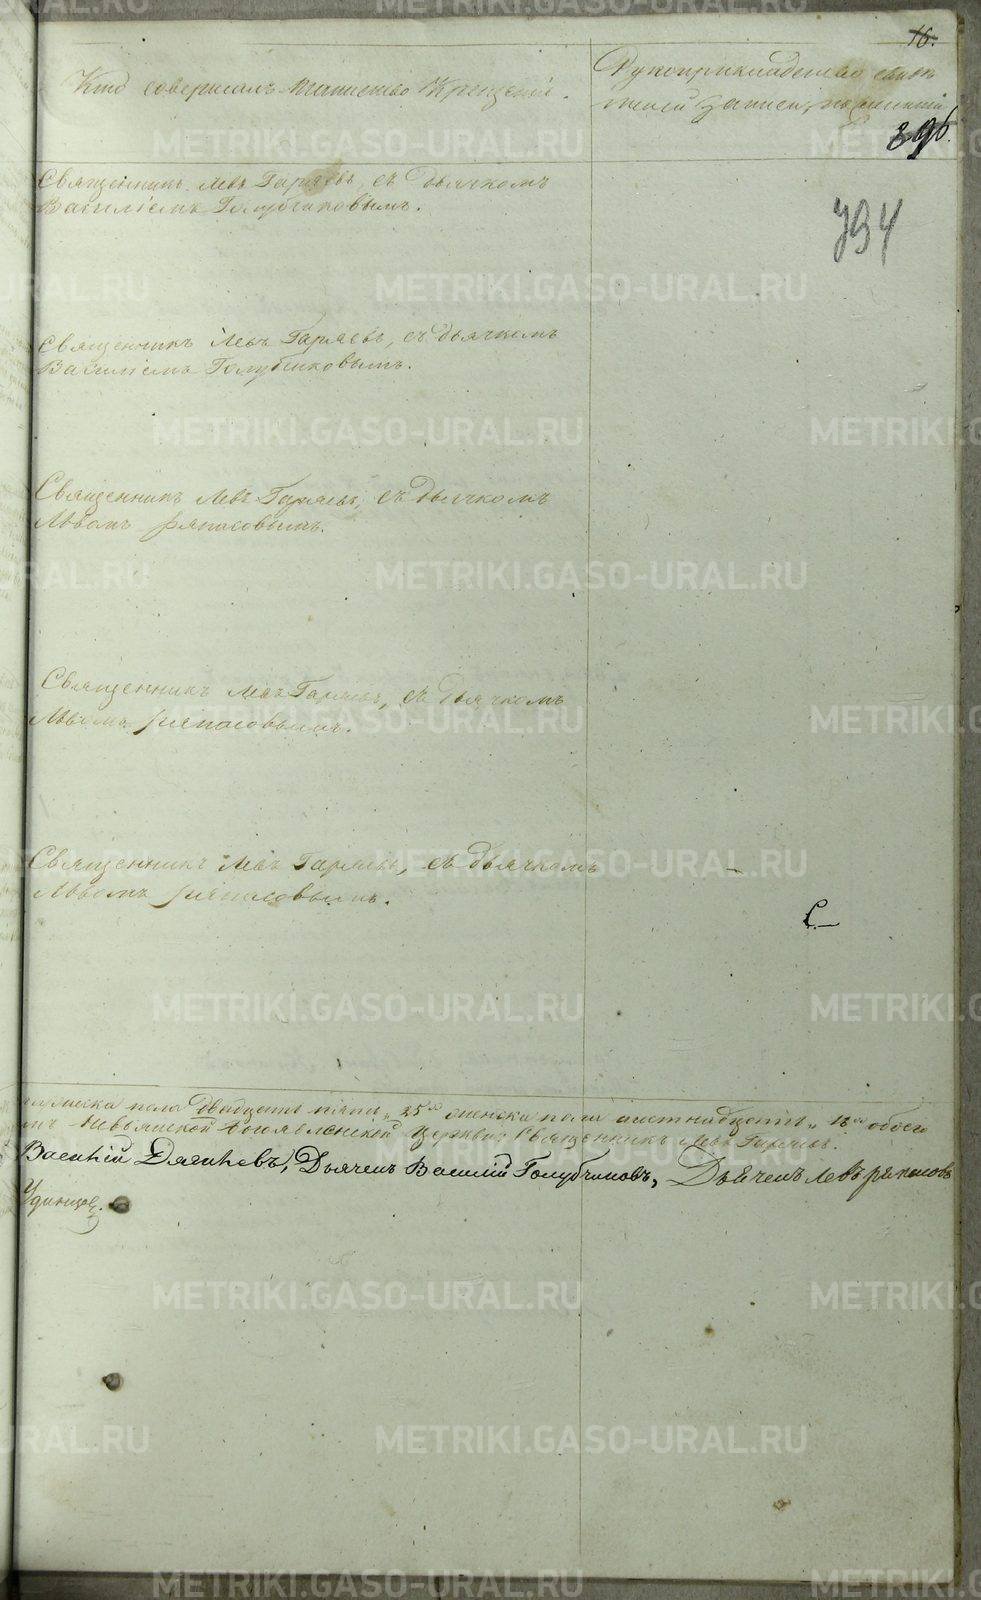 16.
Кто совершалъ таинство Крещенія.
Рукоприкладство свидѣ
телей записи, по желанію
896.
794
Священникъ Левъ Гаряевъ, съ дьячкомъ
Василіемъ Голубчиковымъ.
Священникъ Левъ Гаряевъ, съ дьячкомъ
Василіемъ Голубчиковымъ.
Священникъ Левъ Гаряевъ, съ дьячкомъ
Львомъ Ряпасовымъ.
Священникъ Левъ Гаряевъ, съ дьячкомъ
Львомъ Ряпасовымъ.
Священникъ Левъ Гаряевъ, съ дьячкомъ
Львомъ Ряпасовымъ.
С.
пола двадцать пять „25" женска пола шестнадцать „ обоего
Невьянской Богоявленской Церкви Священникъ Левъ Гаряевъ.
Василій Дягилевъ, Дьячекъ Василій Голубчиковъ, Дьячекъ Левъ Ряпасовъ
Удинцев.
METRIKI.GASO-URAL.RU